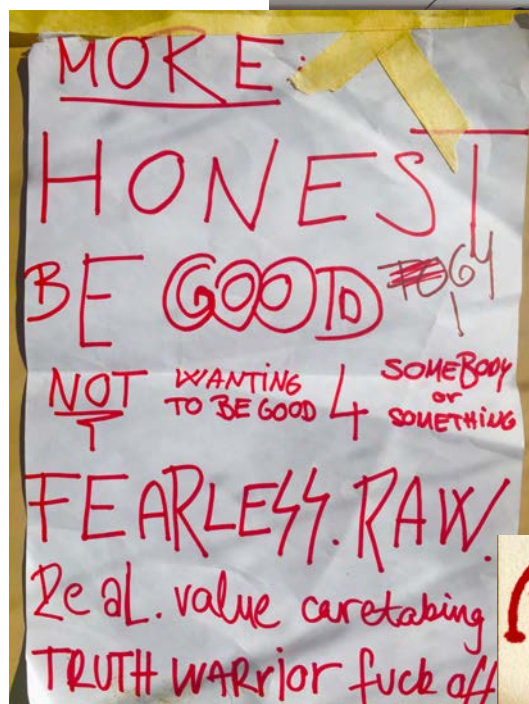 MORE:
HONEST
BE GOOD
NOT WANTING TO BE GOOD 4 SOMEBODY or SOMETHING
FEARLESS. RAW.
ReaL. value caretaking
TRUTH WARrior fuck off